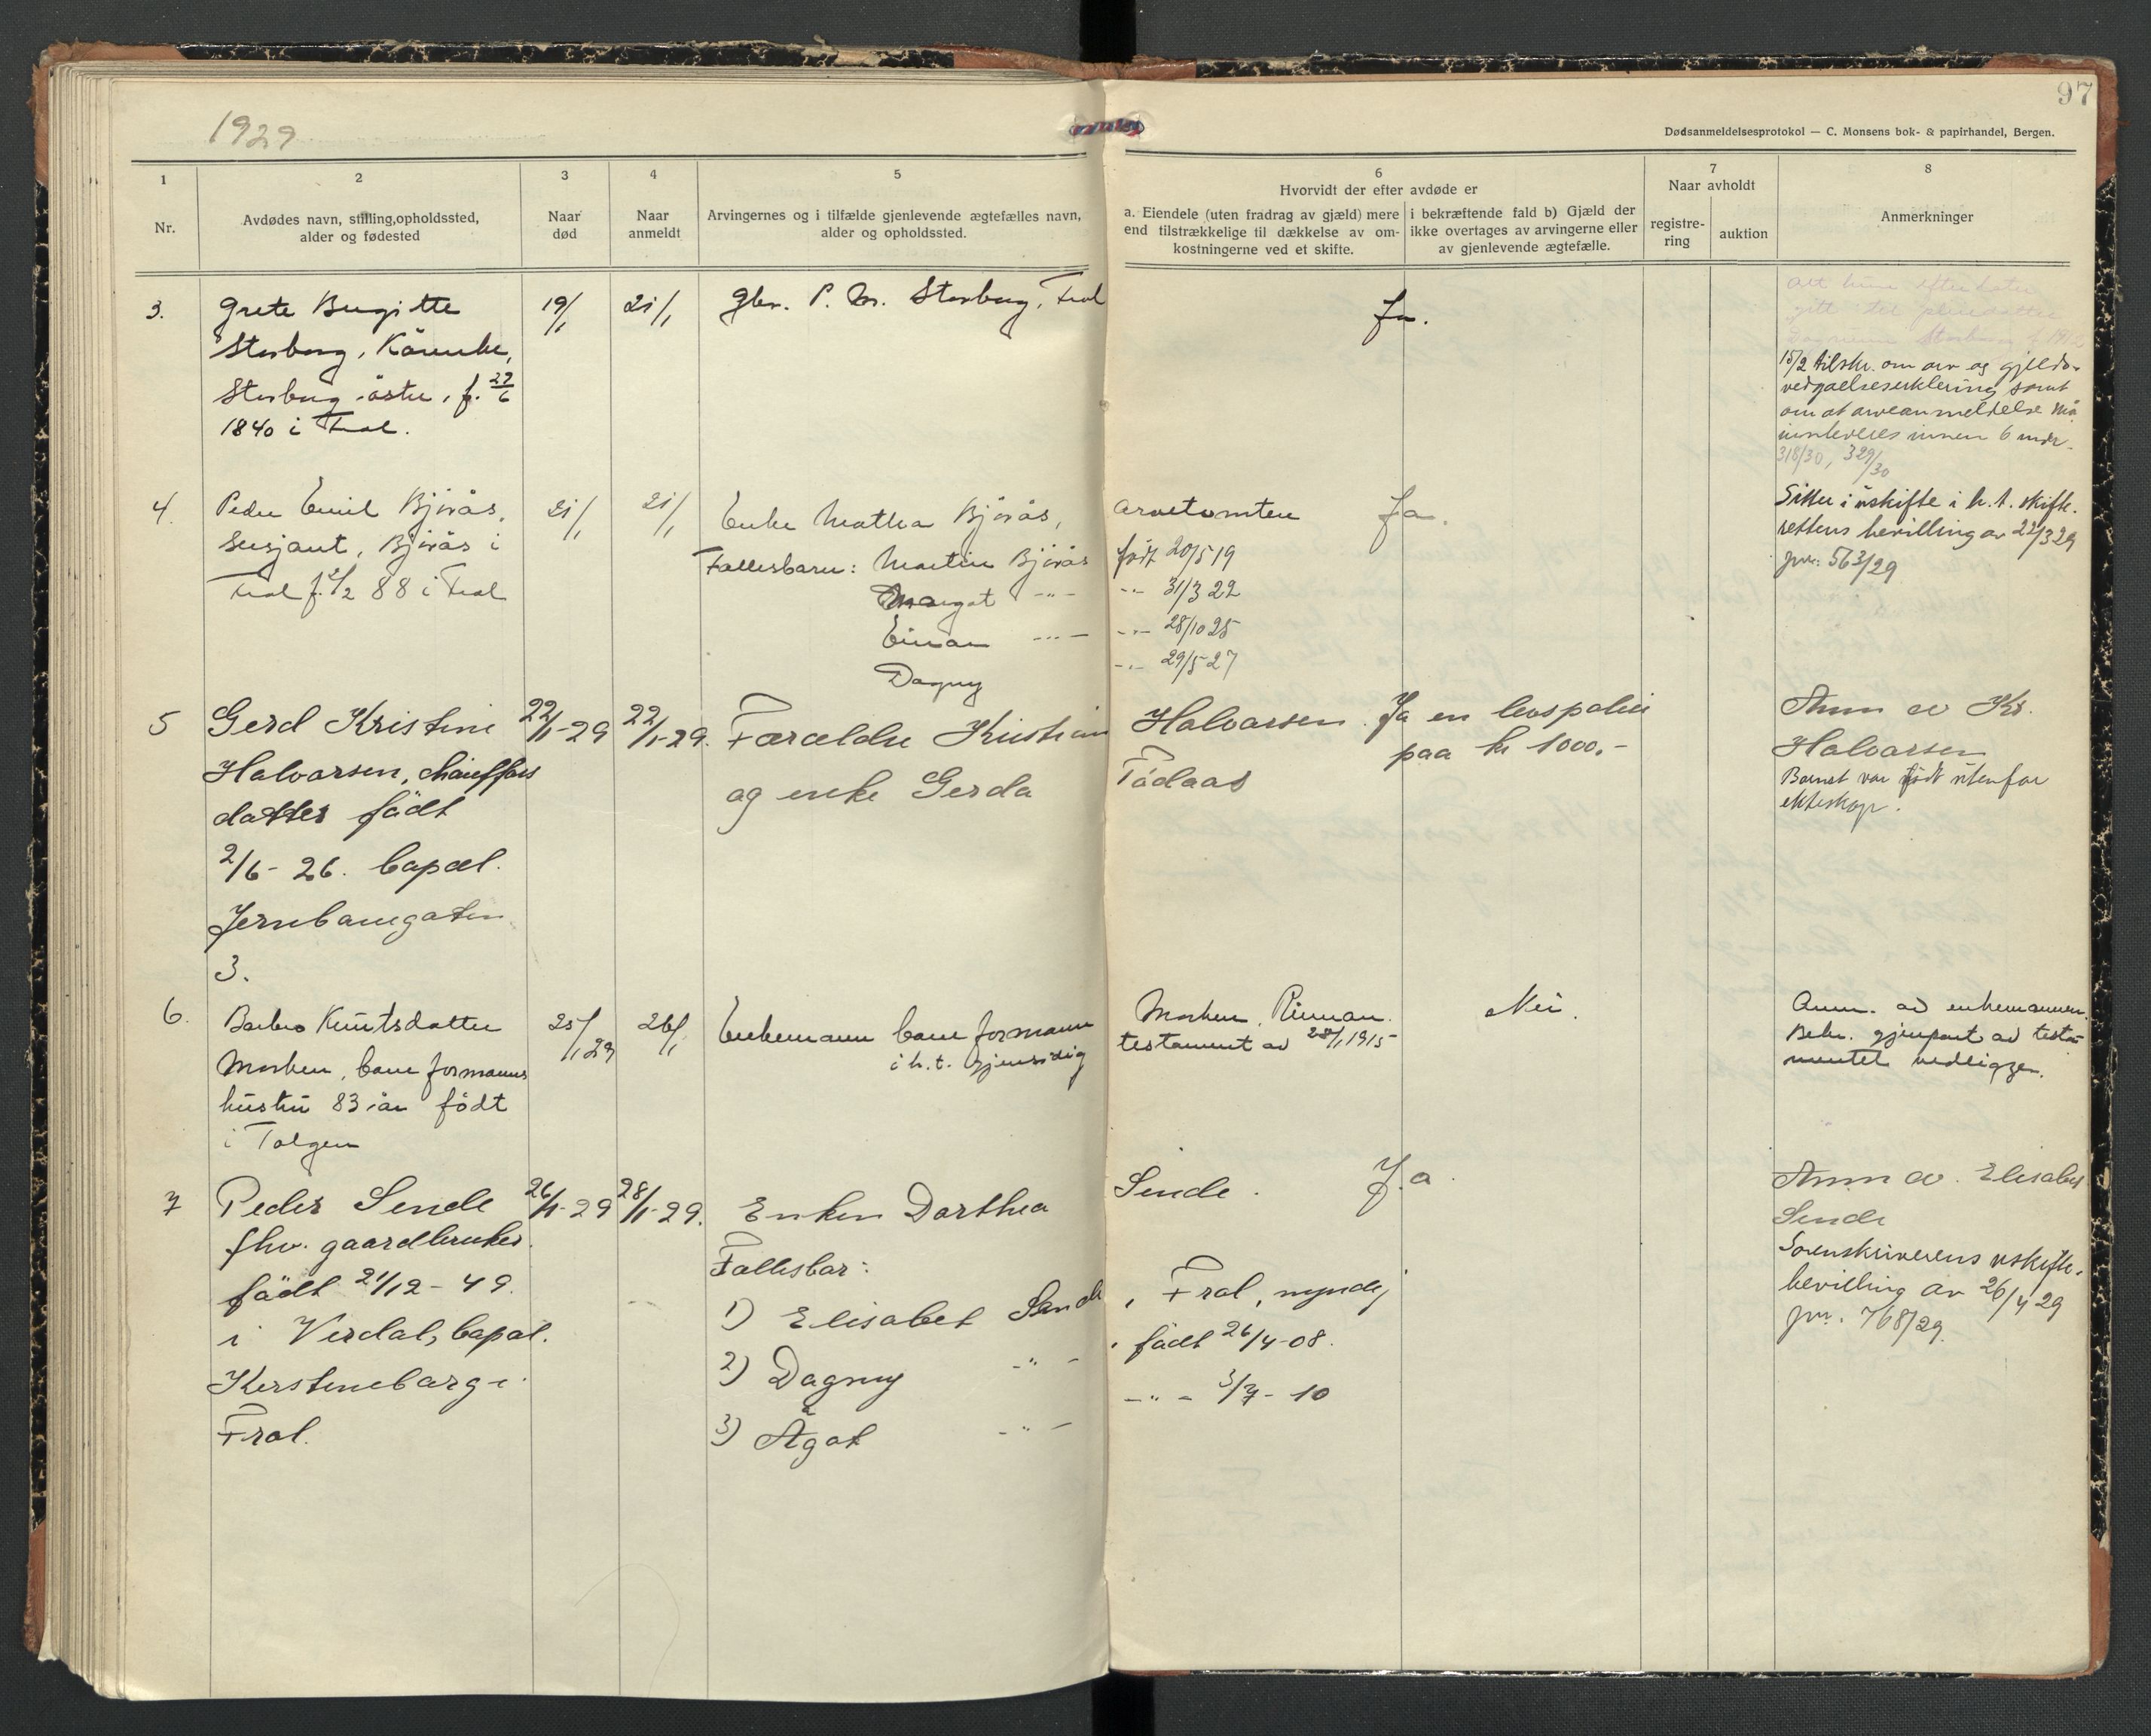 97
1929
Dødsanmeldelsesprotokol — C. Monsens bok- & papirhandel, Bergen.
1
Nr.
2
Avdødes navn, stilling, opholdssted,
alder og fødested
3
Naar
død
4
Naar
anmeldt
5
Arvingernes og i tilfælde gjenlevende ægtefælles navn,
alder og opholdssted.
6
Hvorvidt der efter avdøde er
a. Eiendele (uten fradrag av gjæld) mere
end tilstrækkelige til dækkelse av om-
kostningerne ved et skifte.
i bekræftende fald b) Gjæld der
ikke overtages av arvingerne eller
av gjenlevende ægtefælle.
7
Naar avholdt
registre-
ring
auktion
8
Anmerkninger
3.
Grete Birgitte
Storborg, Kårenke,
Storborg østre, f. 27/6
1840 i Frol.
19/1
21/1
Gbr. P. M. Storborg, Frol
Ja.
15/2 tilskr. om arv og gjelds-
vedgaelseserklering samt
om at arveanmeldelse må
innleveres innen 6 mdr.
318/30, 329/30
4.
Peder Emil Bjørås,
sersjant, Bjørås i
Frol f. 2/2 88 i Frol
21/1
21/1
Enke Mathea Bjørås,
Arvetomten
Ja.
Fellesbarn: Martin Bjørås født 20/5 19
Margot -"- -"- 31/3 22
Einar -"- -"- 28/10 25
Dagny -"- 29/5 27
Sitter i uskifte i h. t. skifte-
rettens bevilling av 22/3 29
jnr: 563/29
5
Gerd Kristine
Halvorsen, chaufførs
datter født
2/6- 26. Capæl.
Jernbanegaten
3.
22/1-29
22/1-29.
Forældre Kristian Halvorsen.
og enke Gerda
Ja en livspolise
paa kr 1000.-
Anm av Kr.
Halvorsen
Barnet var født utenfor
ekteskap.
6.
Barbro Knutsdatter
Morken, baneformanns
hustru 83 år født
i Tolgen
25/1 29
26/1
Enkemann baneformann Morken, Rinnan.
i h. t. gjensidig testament av 28/1 1915
Nei.
Anm. av enkemannen.
Bekr. gjenpart av testa-
mentet vedligger.
7
Peder Sende
fhv. gaardbruker.
født 21/12 - 49.
i Verdal, Capæl.
Kirstineborg i
Frol.
26/1-29
28/1-29.
Enken Dorthea Sende.
Ja.
Fellesbar:
1) Elisabet Sende, Frol, myndig
2) Dagny -"- , født 26/4-08.
3) Ågot -"- -"- 3/7- 10
Anm av. Elisabet
Sende
Sorenskriverens uskifte-
bevilling av 26/4 29
jnr. 768/29.